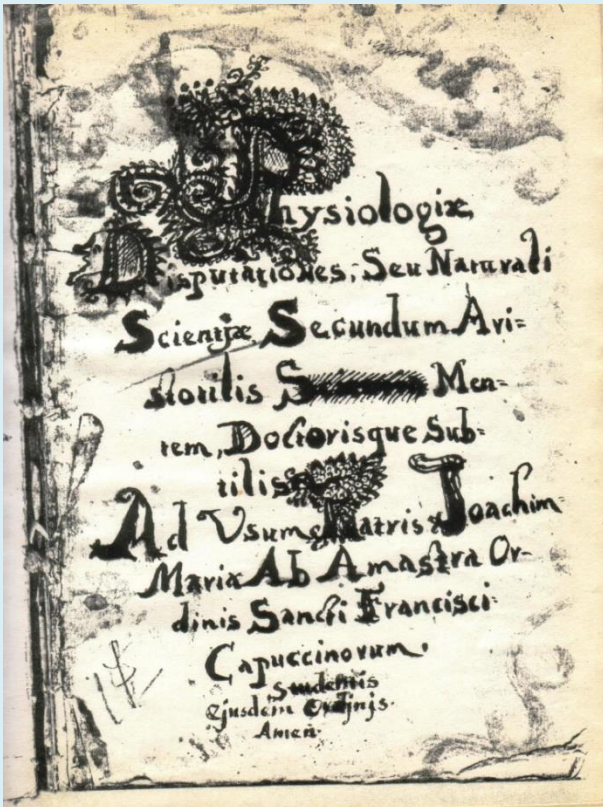 Physiologiæ
Disputationes, Seu Naturali
Scientiæ Secundum Ari=
stotilis Men=
tem, Doctorisque Sub=
tilis
Ad Usum Fratris Joachim
Mariæ Ab Amastra Or-
dinis Sancti Francisci
Capuccinorum.
Studentis
Ejusdem Ordinis.
Amen.